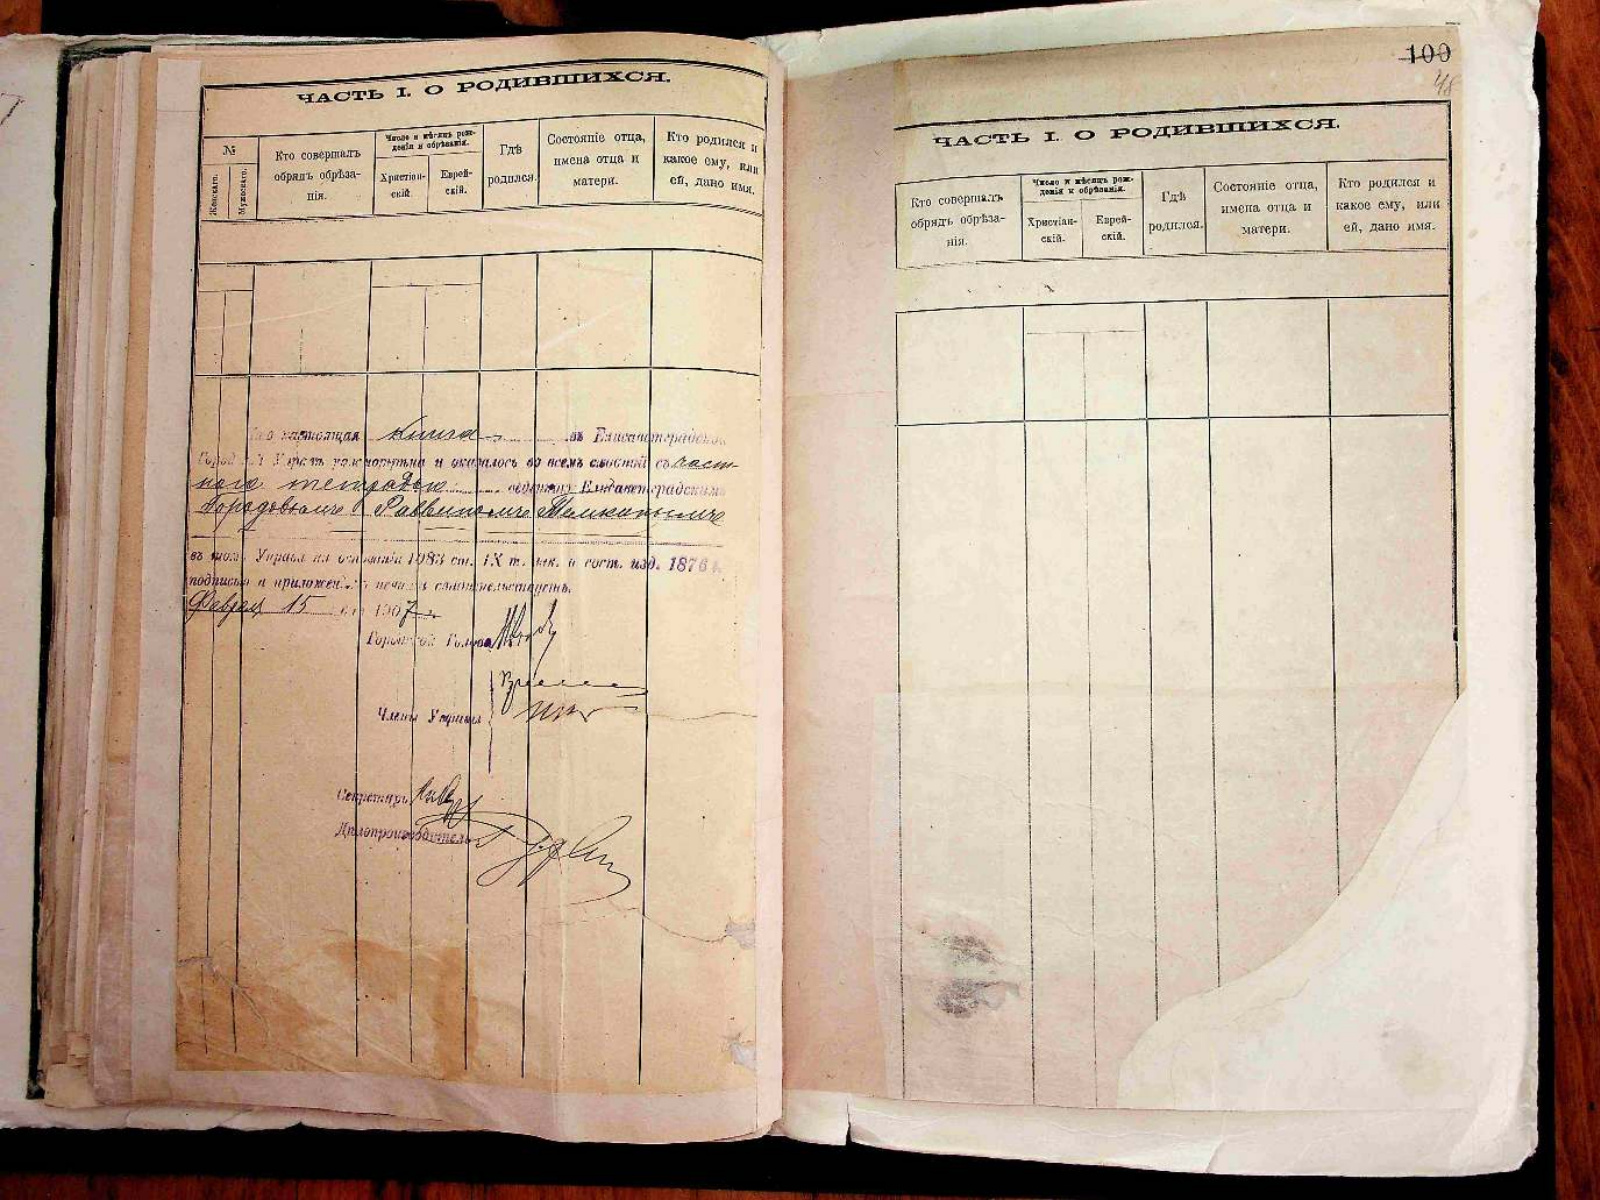 ЧАСТЬ I. О РОДИВШИХСЯ.
№
Женскаго.
Мужескаго.
Кто совершалъ
обрядъ обрѣза-
нія.
Число и мѣсяцъ рож-
денія и обрѣзанія.
Христіан-
скій.
Еврей-
скій.
Гдѣ
родился.
Состояніе отца,
имена отца и
матери.
Кто родился и
какое ему, или
ей, дано имя.
настоящая книга въ Елисаветградской
Город Управѣ и оказалось во всемъ съ част-
ною тетрадью Елисаветградскимъ
Городовымъ Раввиномъ
въ Управа на основаніи 1083 ст. IX т. зак. о сост. изд. 1876 г.
подписью и приложен. печати свидѣтельствуетъ.
Февраля 15 1907
Городской Голова
Члены Управы
Секретарь
Дѣлопроизводитель
100
48
ЧАСТЬ I. О РОДИВШИХСЯ.
Кто совершалъ
обрядъ обрѣза-
нія.
Число и мѣсяцъ рож-
денія и обрѣзанія.
Христіан-
скій.
Еврей-
скій.
Гдѣ
родился.
Состояніе отца,
имена отца и
матери.
Кто родился и
какое ему, или
ей, дано имя.